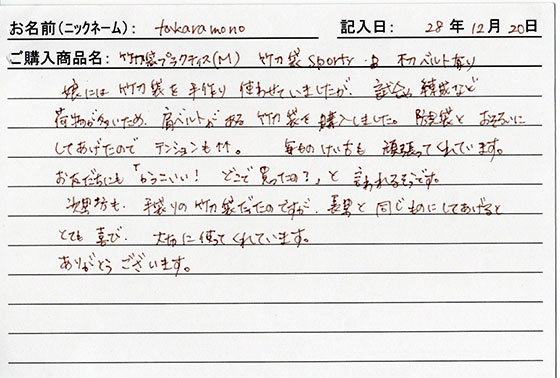 お名前(ニックネーム): takaramono 記入日: 28年12月20日
ご購入商品名: 竹刀袋プラクティス(M) 竹刀袋 Sporty 肩ベルト有り
娘には 竹刀袋を 手作り 使わせていましたが、 試合や 錬成など
荷物が多いため、肩ベルトが ある 竹刀袋を 購入しました。 防具袋と おそろいに
してあげたので テンションも↑↑。 毎日のけい古も 頑張ってくれています。
お友だちにも「かっこいい! どこで買ったの?」と 言われるそうです。
次男坊も、手作りの竹刀袋だったのですが、長男と同じものにしてあげると
とても 喜び、 大切に使ってくれています。
ありがとうございます。